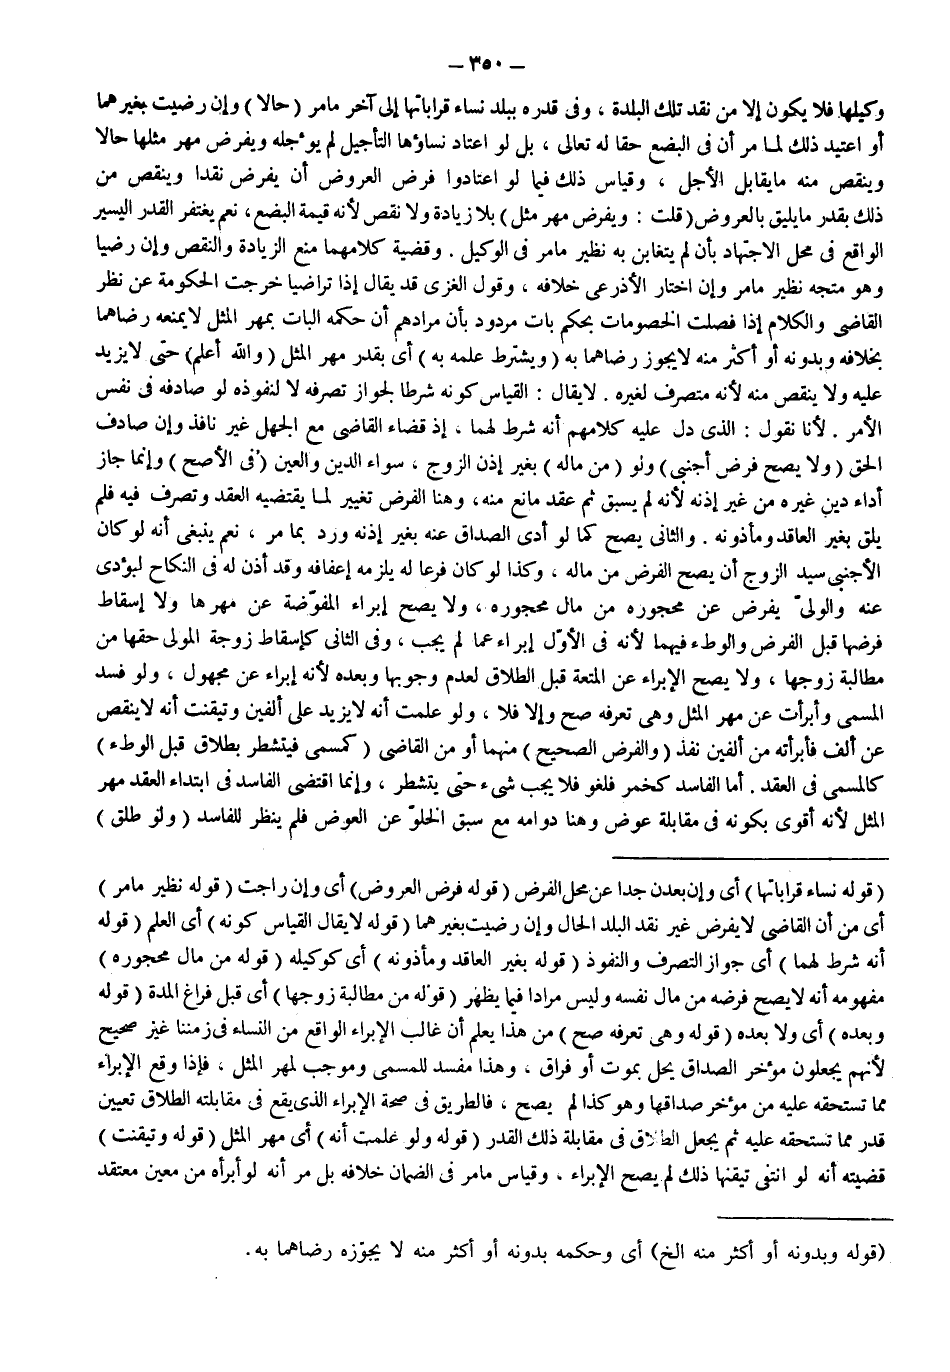 — ٣٥٠ —
وكيلها فلا يكون إلا من نقد تلك البلدة ، وفى قدره ببلد نساء قراباتها إلى آخر مامر ( حالا ) وإن رضيت بغيرهما
أو اعتيد ذلك لمـا مر أن فى البضع حقا له تعالى ، بل لو اعتاد نساؤها التأجيل لم يوٴجله ويفرض مهر مثلها حالا
وينقص منه مايقابل الأجل ، وقياس ذلك فيا لو اعتادوا فرض العروض أن يفرض نقدا وينقص من
ذلك بقدر مايليق بالعروض ( قلت : ويفرض مهر مثل ) بلا زيادة ولا نقص لأنه قيمة البضع، نعم يغتفر القدر اليسير
الواقع فى محل الاجتهاد بأن لم يتغابن به نظير مامر فى الوكيل . وقضية كلامهما منع الزيادة والنقص وإن رضيا
وهو متجه نظير مامر وإن اختار الأذرعى خلافه ، وقول الغزى قد يقال إذا تراضيا خرجت الحكومة عن نظر
القاضى والكلام إذا فصلت الخصومات بحكم بات مردود بأن مرادهم أن حكمه البات بمهر المثل لايمنعه رضاهما
بخلافه وبدونه أو أكثر منه لايجوز رضاهما به ( ويشترط علمه به ) أى بقدر مهر المثل ( والله أعلم) حتى لايزيد
عليه ولا ينقص منه لأنه متصرف لغيره . لايقال : القياس كونه شرطا لجواز تصرفه لا لنفوذه لو صادفه فى نفس
الأمر . لأنا نقول : الذى دل عليه كلامهم أنه شرط لهما ، إذ قضاء القاضى مع الجهل غير نافذ وإن صادف
الحق ( ولا يصح فرض أجنبى) ولو ( من ماله ) بغير إذن الزوج ، سواء الدين والعين ( فى الأصح ) وإنما جاز
أداء دين غيره من غير إذنه لأنه لم يسبق ثم عقد مانع منه، وهنا الفرض تغيير لمـا يقتضيه العقد وتصرف فيه فلم
يلق بغير العاقد ومأذونه . والثانى يصح كما لو أدى الصداق عنه بغير إذنه ورد بما مر ، نعم ينبغى أنه لو كان
الأجنبى سيد الزوج أن يصح الفرض من ماله ، وكذا لو كان فرعا له يلزمه إعفافه وقد أذن له فى النكاح ليوٴدى
عنه والولىّ يفرض عن محجوره من مال محجوره ، ولا يصح إبراء المفوّضة عن مهرها ولا إسقاط
فرضها قبل الفرض والوطء فيهما لأنه فى الأوّل إبراء عما لم يجب ، وفى الثانى كإسقاط زوجة المولى حقها من
مطالبة زوجها ، ولا يصح الإبراء عن المتعة قبل الطلاق لعدم وجوبها وبعده لأنه إبراء عن مجهول ، ولو فسد
المسمى وأبرأت عن مهر المثل وهى تعرفه صح وإلا فلا ، ولو علمت أنه لايزيد على ألفين وتيقنت أنه لاينقص
عن ألف فأبرأته من ألفين نفذ ( والفرض الصحيح ) منهما أو من القاضى ( كمسمى فيتشطر بطلاق قبل الوطء )
كالمسمى فى العقد . أما الفاسد كخمر فلغو فلا يجب شىء حتى يتشطر ، وإنما اقتضى الفاسد فى ابتداء العقد مهر
المثل لأنه أقوى بكونه فى مقابلة عوض وهنا دوامه مع سبق الخلوّ عن العوض فلم ينظر للفاسد ( ولو طلق )
( قوله نساء قراباتها ) أى وإن بعدن جدا عن محل الفرض ( قوله فرض العروض) أى وإن راجت ( قوله نظير مامر )
أى من أن القاضى لايفرض غير نقد البلد الحال وإن رضيت بغيرهما ( قوله لايقال القياس كونه ) أى العلم ( قوله
أنه شرط لهما ) أى جواز التصرف والنفوذ ( قوله بغير العاقد ومأذونه ) أى كوكيله ( قوله من مال محجوره )
مفهومه أنه لايصح فرضه من مال نفسه وليس مرادا فيما يظهر ( قوله من مطالبة زوجها ) أى قبل فراغ المدة ( قوله
وبعده ) أى ولا بعده ( قوله وهى تعرفه صح ) من هذا يعلم أن غالب الإبراء الواقع من النساء فى زمننا غير صحيح
لأنهم يجعلون موٴخر الصداق يحل بموت أو فراق ، وهذا مفسد للمسمى وموجب لمهر المثل ، فإذا وقع الإبراء
مما تستحقه عليه من موٴخر صداقها وهو كذا لم يصح ، فالطريق فى صحة الإبراء الذى يقع فى مقابلته الطلاق تعيين
قدر مما تستحقه عليه ثم يجعل الطلاق فى مقابلة ذلك القدر ( قوله ولو علمت أنه ) أى مهر المثل ( قوله وتيقنت )
قضيته أنه لو انتفى تيقنها ذلك لم يصح الإبراء ، وقياس مامر فى الضمان خلافه بل مر أنه لو أبرأه من معين معتقد
(قوله وبدونه أو أكثر منه الخ) أى وحكمه بدونه أو أكثر منه لا يجوّزه رضاهما به.